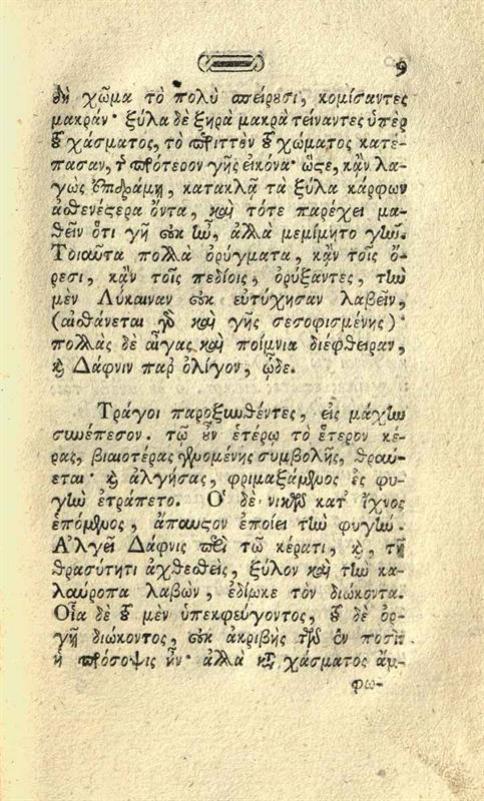 χῶμα τὸ πολὺ σπείρουσι, κομίσαντες
μακράν· ξύλα δὲ ξηρὰ μακρὰ τείναντες ὑπὲρ
τοῦ χάσματος, τὸ περιττὸν τοῦ χώματος κατέ-
πασαν, τὴν πρότερον γῆς εἰκόνα· ὥστε, κᾂν λα-
γὼς ἐπιδράμῃ, κατακλᾷ τὰ ξύλα κάρφων
ἀσθενέστερα ὄντα, καὶ τότε παρέχει μα-
θεῖν ὅτι γῆ οὐκ ἦν, ἀλλὰ μεμίμητο γῆν.
Τοιαῦτα πολλὰ ὀρύγματα, κᾂν τοῖς ὄ-
ρεσι, κᾂν τοῖς πεδίοις, ὀρύξαντες, τὴν
μὲν Λύκαιναν οὐκ εὐτύχησαν λαβεῖν,
(αἰσθάνεται γὰρ καὶ γῆς σεσοφισμένης)·
πολλὰς δὲ αἶγας καὶ ποίμνια διέφθειραν,
καὶ Δάφνιν παρ' ὀλίγον, ὧδε.
Τράγοι παροξυνθέντες, εἰς μάχην
συνέπεσον. τῷ οὖν ἑτέρῳ τὸ ἕτερον κέ-
ρας, βιαιοτέρας γενομένης συμβολῆς, θραύ-
εται· καὶ ἀλγήσας, φριμαξάμενος ἐς φυ-
γὴν ἐτράπετο. Ὁ δὲ νικῶν κατ' ἴχνος
ἑπόμενος, ἄπαυστον ἐποίει τὴν φυγήν.
Ἀλγεῖ Δάφνις περὶ τῷ κέρατι, καὶ, τῇ
θρασύτητι ἀχθεσθεὶς, ξύλον καὶ τὴν κα-
λαύροπα λαβὼν, ἐδίωκε τὸν διώκοντα.
Οἷα δὲ τοῦ μὲν ὑπεκφεύγοντος, τοῦ δὲ ὀρ-
γῇ διώκοντος, οὐκ ἀκριβὴς τῶν ἐν ποσὶν
ἡ πρόσοψις ἦν· ἀλλὰ κατὰ χάσματος ἄμ-
φω-
9